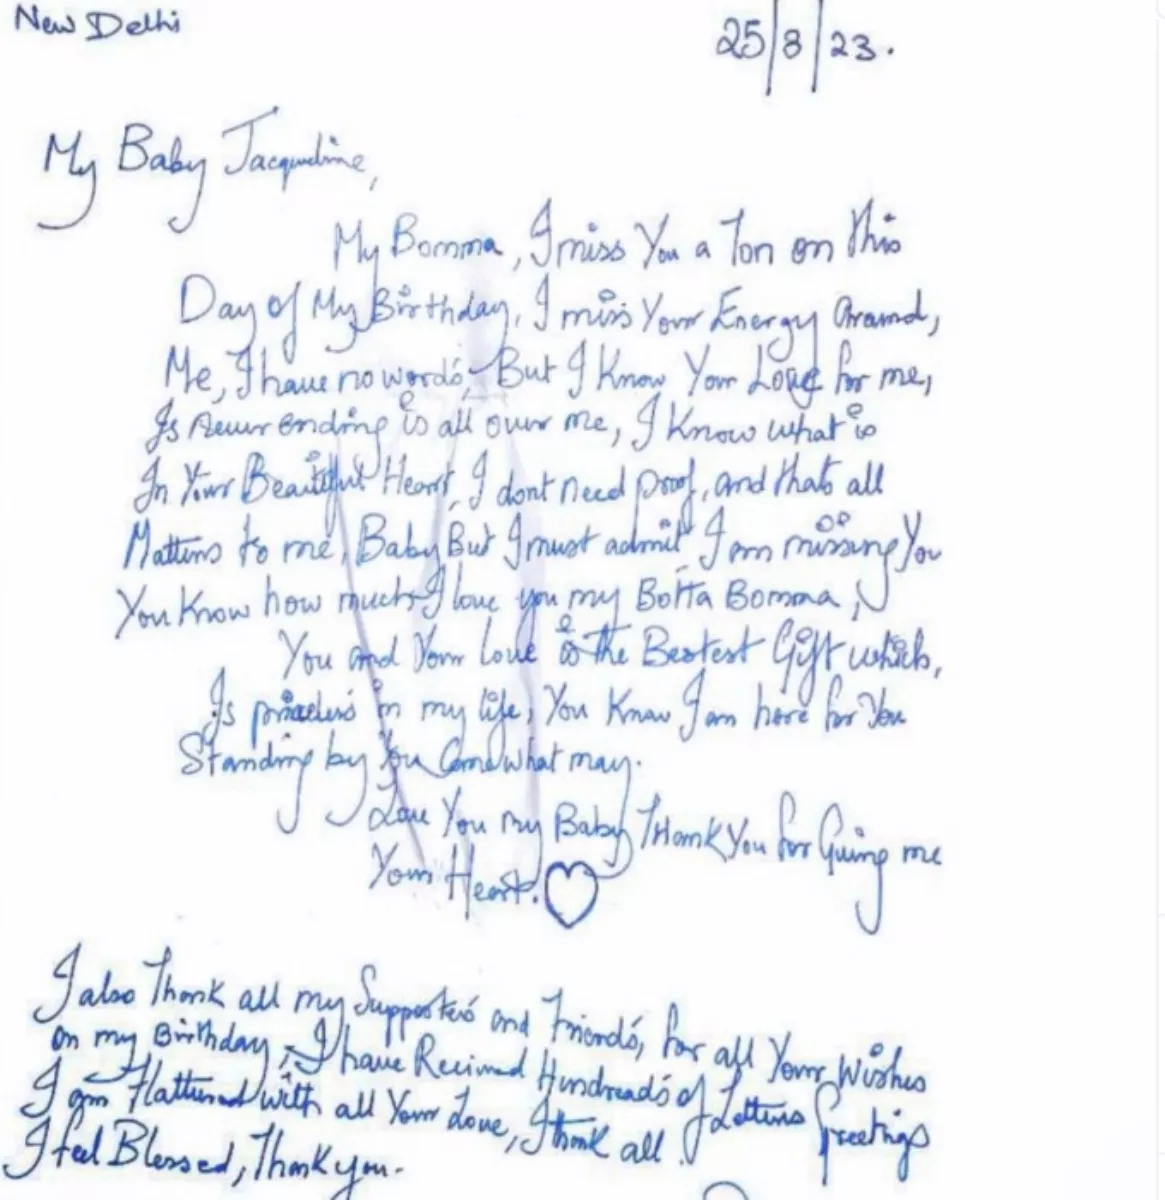 New Delhi
25/8/23.
My Baby Jacqueline,
My Bomma, I miss You a Ton on this
Day of My Birthday, I miss Your Energy Around,
Me, I have no words, But I Know Your Love for me,
Is never ending is all over me, I Know what is
In Your Beautiful Heart, I dont need proof, and thats all
Matters to me, Baby But I must admit I am missing You
You Know how much I love you my Botta Bomma,
You and Your Love is the Bestest Gift which,
Is priceless in my life, You Know I am here for You
Standing by You Come what may.
Love You my Baby Thank You for Giving me
Your Heart.
I also Thank all my Supporters and Friends, for all Your Wishes
on my Birthday, I have Recived Hundreads of Letters Greetings
I am Flattered with all Your Love, I thank all.
I feel Blessed, Thank you.